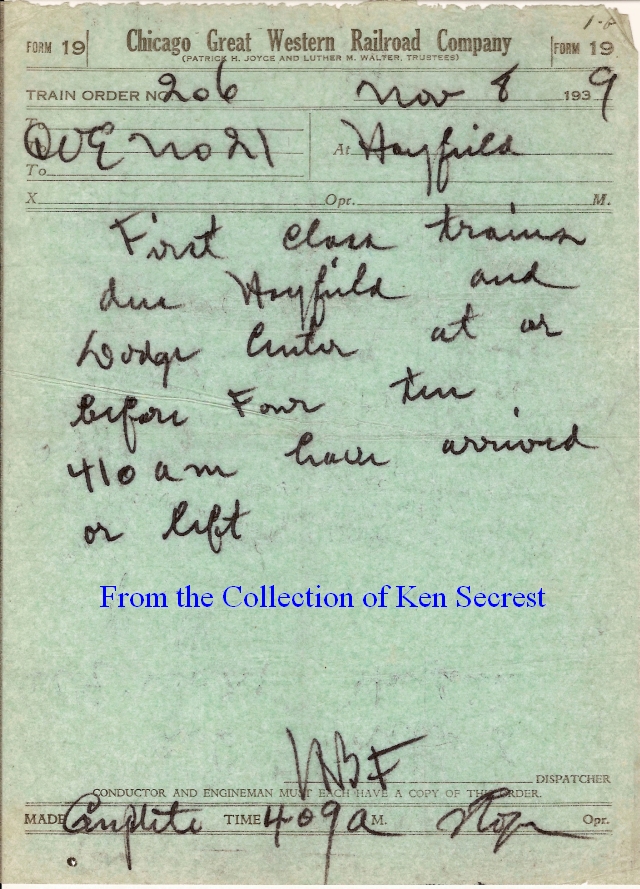 1-8
FORM 19 Chicago Great Western Railroad Company FORM 19
(PATRICK H. JOYCE AND LUTHER M. WALTER, TRUSTEES)
TRAIN ORDER NO. 206 Nov 8 1939
To
No 21 At Hayfield
To
X Opr. M.
First class trains
due Hayfield and
Dodge Center at or
before Four ten
410 am have arrived
or left
From the Collection of Ken Secrest
DISPATCHER
CONDUCTOR AND ENGINEMAN MUST EACH HAVE A COPY OF THIS ORDER.
MADE Complete TIME 409 A M. Opr.